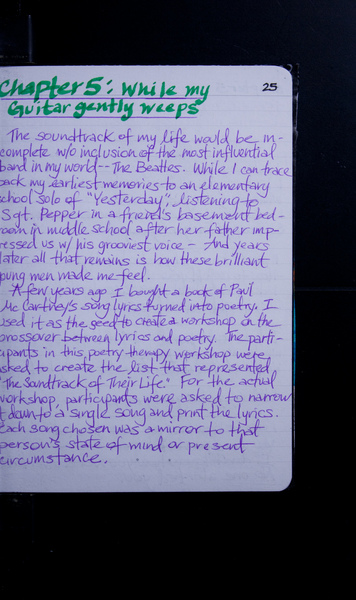 25
Chapter 5: While my
Guitar gently weeps
The soundtrack of my life would be in-
complete w/o inclusion of the most influential
band in my world -- The Beatles. While I can trace
back my earliest memories to an elementary
school solo of "Yesterday", listening to
Sgt. Pepper in a friend's basement bed-
room in middle school after her father imp-
ressed us w/ his grooviest voice - And years
later all that remains is how these brilliant
young men made me feel.
A few years ago I bought a book of Paul
McCartney's song lyrics turned into poetry. I
used it as the seed to create a workshop on the
crossover between lyrics and poetry. The parti-
cipants in this poetry therapy workshop were
asked to create the list that represented
"The Soundtrack of Their Life." For the actual
workshop, participants were asked to narrow
it down to a single song and print the lyrics.
Each song chosen was a mirror to that
person's state of mind or present
circumstance.